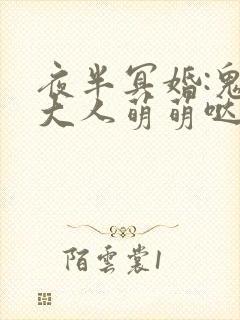 夜半冥婚:鬼
大人萌萌哒
陌雲裳1